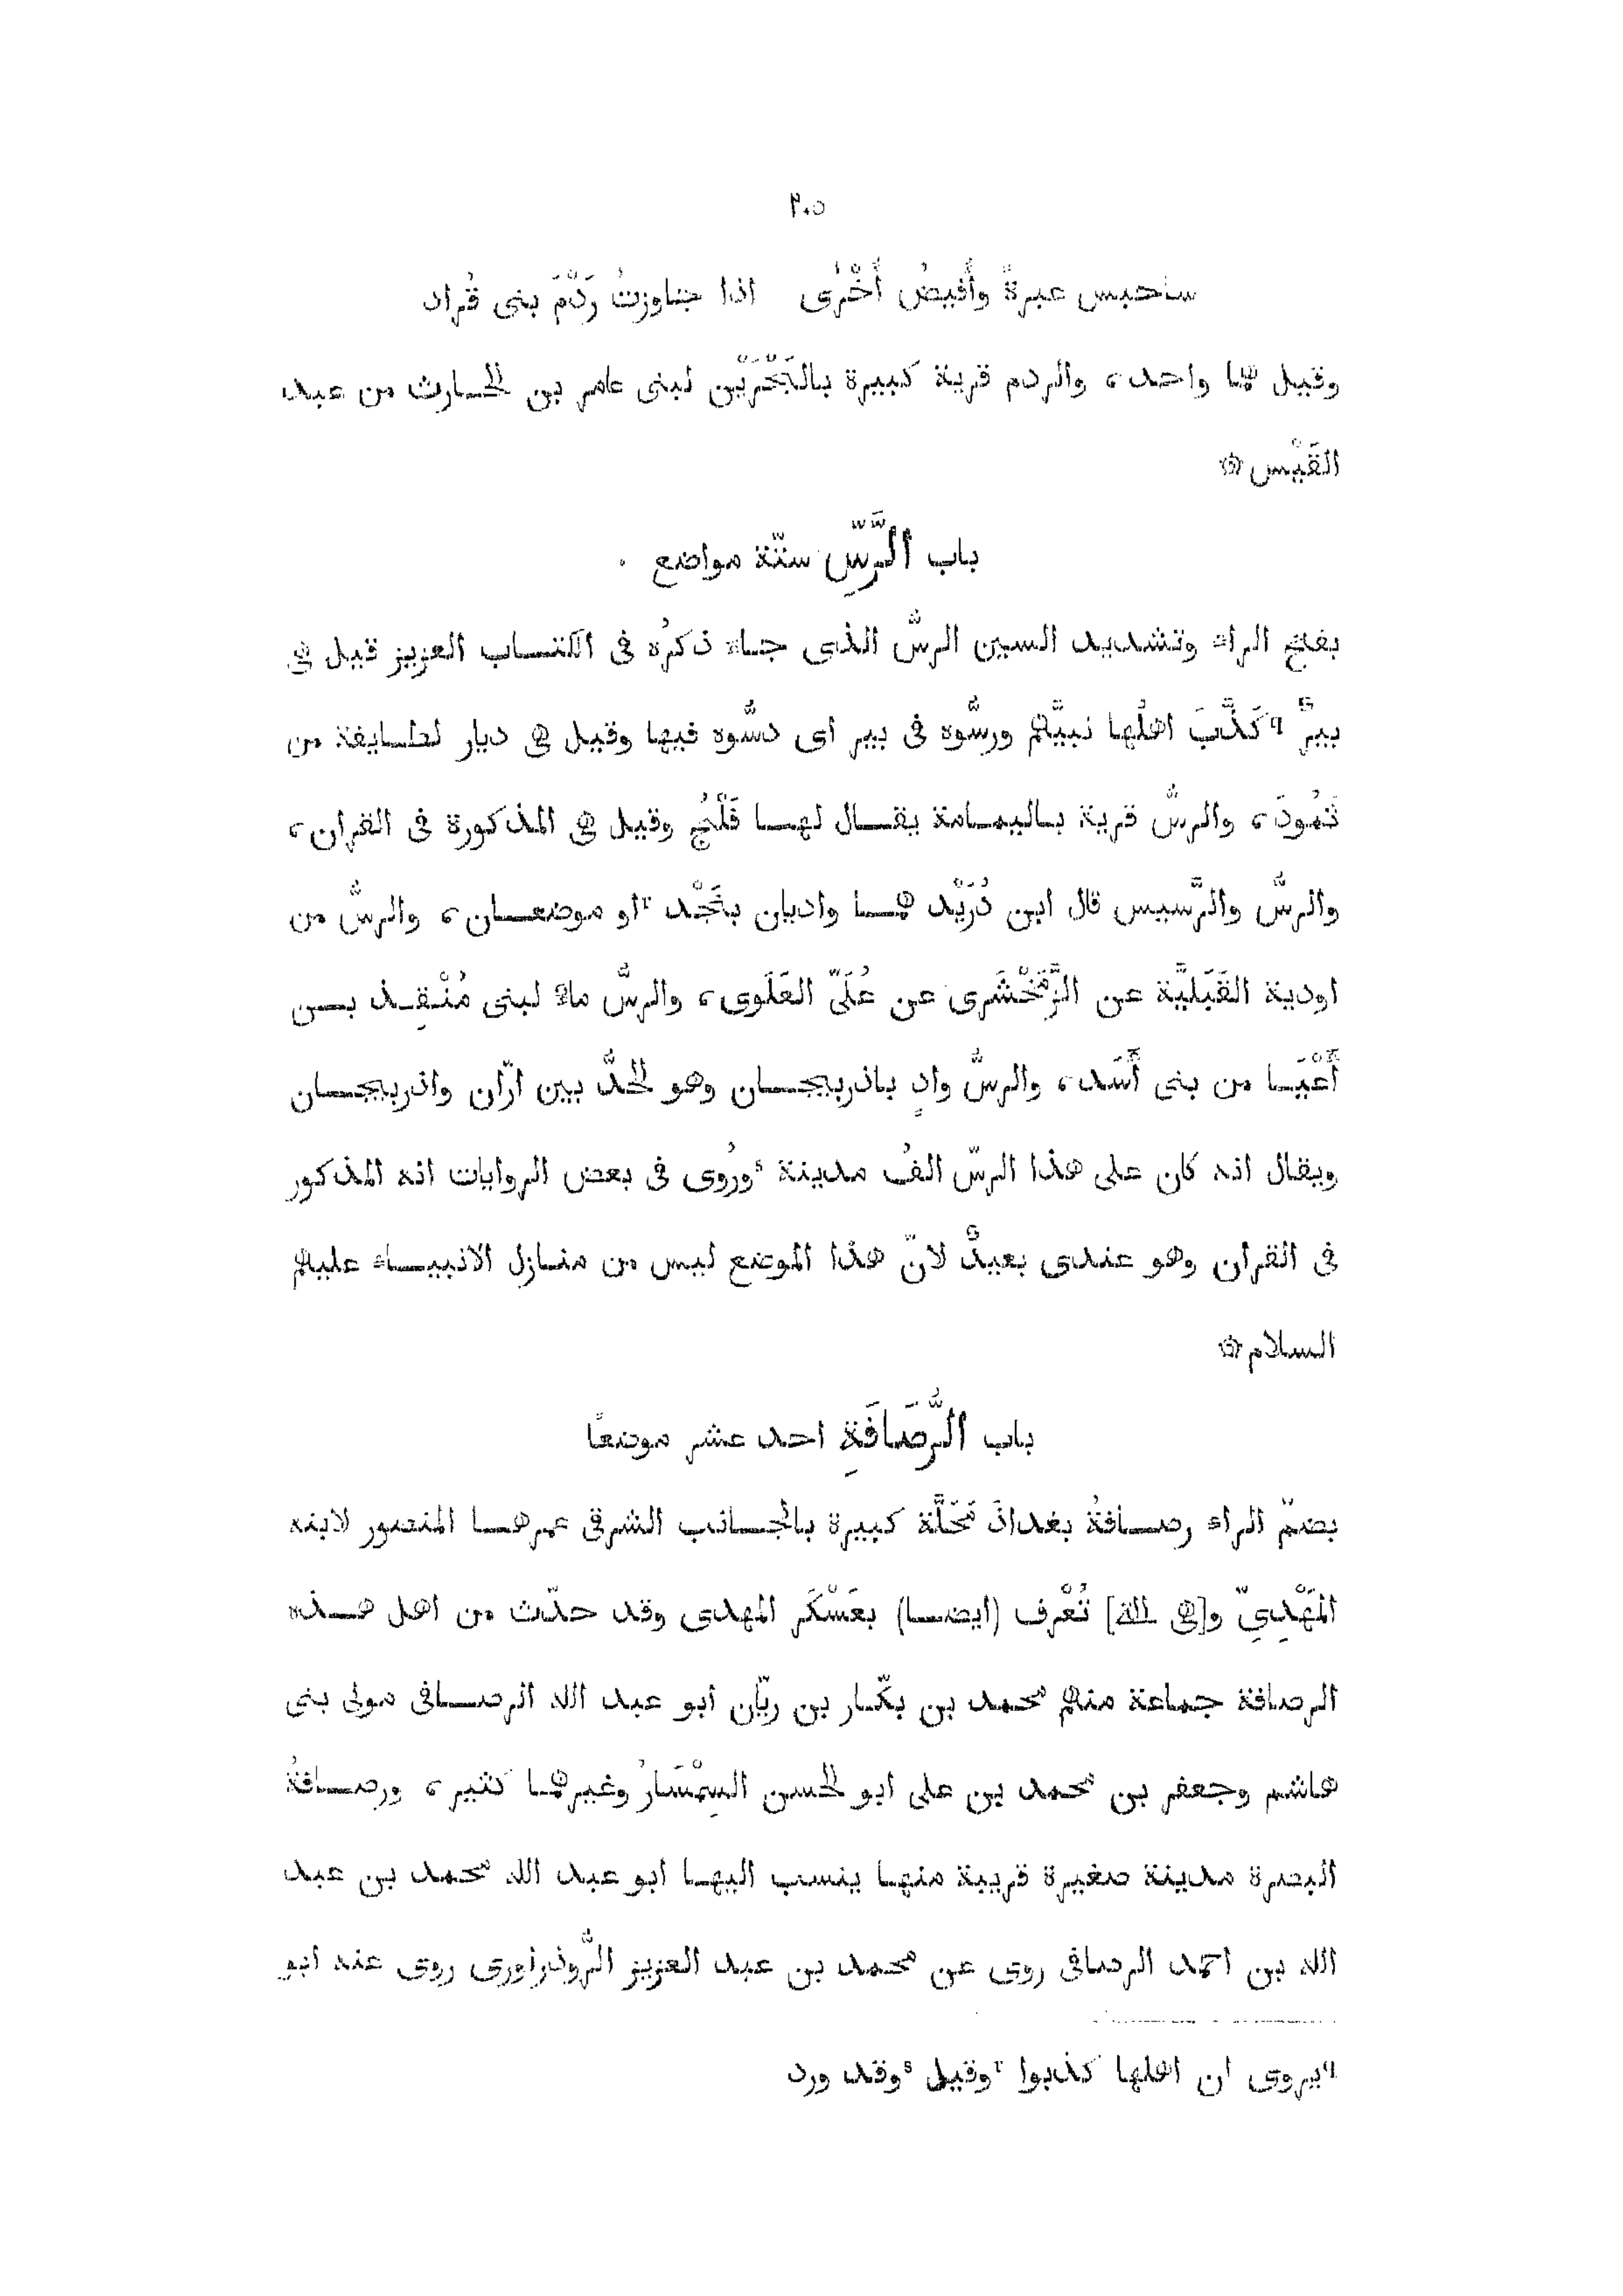 ٢٠٥
ساحبس عبرةً وأُفيضُ أُخْرى اذا جاوزتُ رَدْمَ بنى قُراد
وقيل هما واحد، والردم قرية كبيرة بالبَحْرَيْن لبنى عامر بن الحارث من عبد
القَيْس۞
باب الرَّسِّ ستّة مواضع
بفتح الراء وتشديد السين الرسُّ الذى جاء ذكرُه فى الكتاب العزيز قيل هى
بيرٌ ⁹كَذَّبَ اهلُها نبيَّهم ورسُّوه فى بير اى دسُّوه فيها وقيل هى ديار لطايفة من
ثَمُودَ، والرسُّ قرية باليمامة يقال لها فَلْجُ وقيل هى المذكورة فى القران،
والرسُّ والرَّسيس قال ابن دُرَيْد هما واديان بنَجْد ʳاو موضعان، والرسُّ من
اودية القَبَليَّة عن الزَّمَخْشَرى عن عُلَىّ العَلَوى، والرسُّ ماءٌ لبنى مُنْقِذ بن
أَعْيَا من بنى أَسَد، والرسُّ وادٍ باذربيجان وهو الحدُّ بين ارّان واذربيجان
ويقال انه كان على هذا الرسّ الفُ مدينة ˢورُوى فى بعض الروايات انه المذكور
فى القران وهو عندى بعيدٌ لانّ هذا الموضع ليس من منازل الانبياء عليهم
السلام۞
باب الرُّصَافَةِ احد عشر موضعًا
بضمّ الراء رصافةُ بغداذَ مَحَلَّة كبيرة بالجانب الشرقى عمرها المنصور لابنه
المَهْدِىِّ و[هى الآن] تُعْرف (ايضا) بعَسْكَر المهدى وقد حدّث من اهل هذه
الرصافة جماعة منهم محمد بن بكّار بن ريّان ابو عبد الله الرصافى مولى بنى
هاشم وجعفر بن محمد بن على ابو الحسن السِمْسَارُ وغيرهما كثير، ورصافةُ
البصرة مدينة صغيرة قريبة منها ينسب اليها ابو عبد الله محمد بن عبد
الله بن احمد الرصافى روى عن محمد بن عبد العزيز الرُّوذراورى روى عنه ابو
⁹يروى ان اهلها كذبوا ʳوقيل ˢوقد ورد